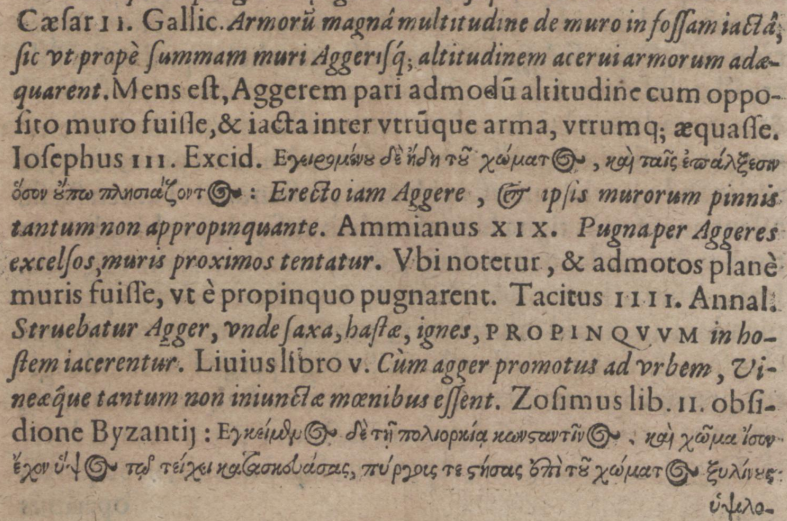 Cæſar II. Gallic. Armorũ magnâ multitudine de muro in foſſam iactâ,
ſic vt propè ſummam muri Aggeriſq́; altitudinem acerui armorum adæ-
quarent. Mens eſt, Aggerem pari admodũ altitudine cum oppo-
ſito muro fuiſſe, & iacta inter vtrũque arma, vtrumq; æquaſſe.
Ioſephus III. Excid. Εγειρομένου δὲ ἤδη τοῦ χώματος, καὶ ταῖς ἐπάλξεσιν
ὅσον οὔπω πλησιάζοντος : Erecto iam Aggere, & ipſis murorum pinnis
tantum non appropinquante. Ammianus XIX. Pugna per Aggeres
excelſos, muris proximos tentatur. Vbi notetur, & admotos planè
muris fuiſſe, vt è propinquo pugnarent. Tacitus IIII. Annal.
Struebatur Agger, vnde ſaxa, haſtæ, ignes, PROPINQVVM in ho-
ſtem iacerentur. Liuius libro V. Cùm agger promotus ad vrbem, Vi-
neæq́ue tantum non iniunctæ mœnibus eſſent. Zoſimus lib. II. obſi-
dione Byzantij : Εγκείμενος δὲ τῇ πολιορκίᾳ κωνσταντῖνος, καὶ χῶμα ἴσον
ἔχον ὕψος τῷ τείχει κατασκευάσας, πύργους τε στήσας ἐπὶ τοῦ χώματος ξυλίνους
ὑψηλο-